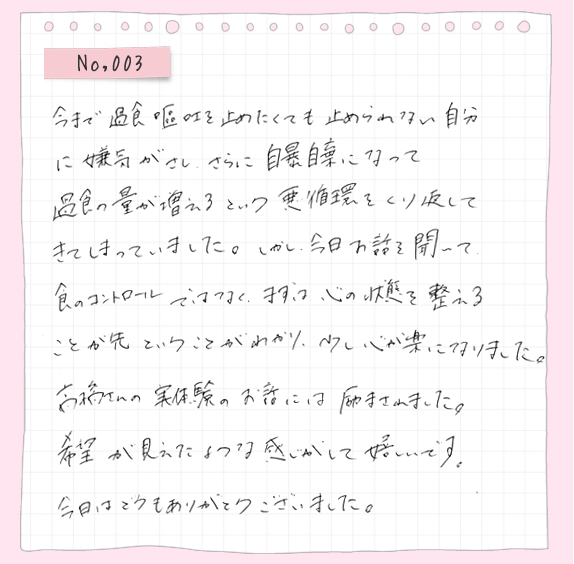 No,003
今まで過食嘔吐を止めたくても止められない自分
に嫌気がさし、さらに自暴自棄になって
過食の量が増えるという悪循環をくり返して
きてしまっていました。しかし、今日お話を聞いて、
食のコントロールではなく、まずは心の状態を整える
ことが先ということがわかり、少し心が楽になりました。
高橋さんの実体験のお話には励まされました。
希望が見えたような感じがして嬉しいです。
今日はどうもありがとうございました。